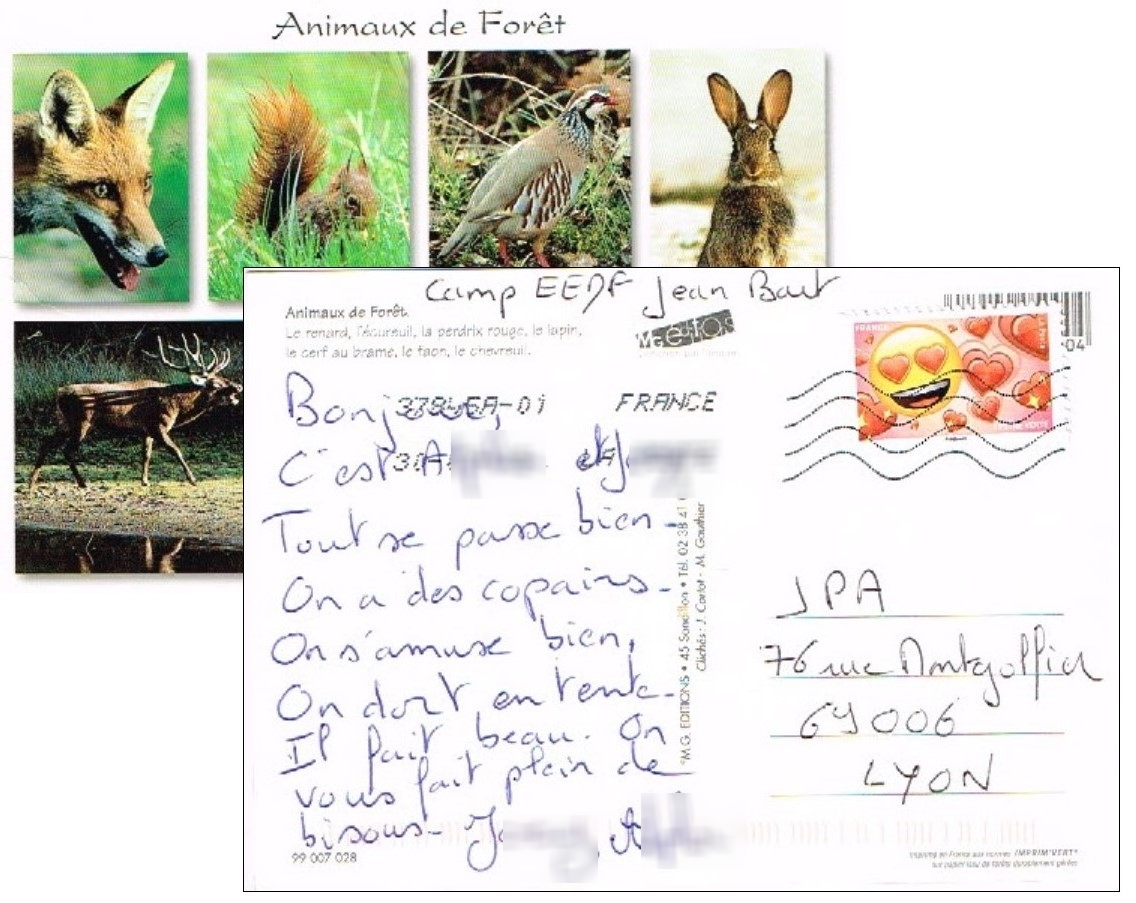 Animaux de Forêt
Camp EEDF Jean Bart
Animaux de Forêt.
Le renard, l'écureuil, la perdrix rouge, le lapin,
le cerf au brame, le faon, le chevreuil.
FRANCE
04
Bonjour,
37846A-01 FRANCE
C'est A et J
Tout se passe bien.
On a des copains.
On s'amuse bien,
On dort en tente.
Il fait beau. On
vous fait plein de
bisous. J , A
"M.G. EDITIONS • 45 Sandillon • Tél. 02 38 41
Clichés : J. Carlot - M. Gauthier
JPA
76 rue Montgolfier
69006
LYON
99 007 028
Imprimé en France aux normes IMPRIM'VERT®
sur papier issu de forêts durablement gérées